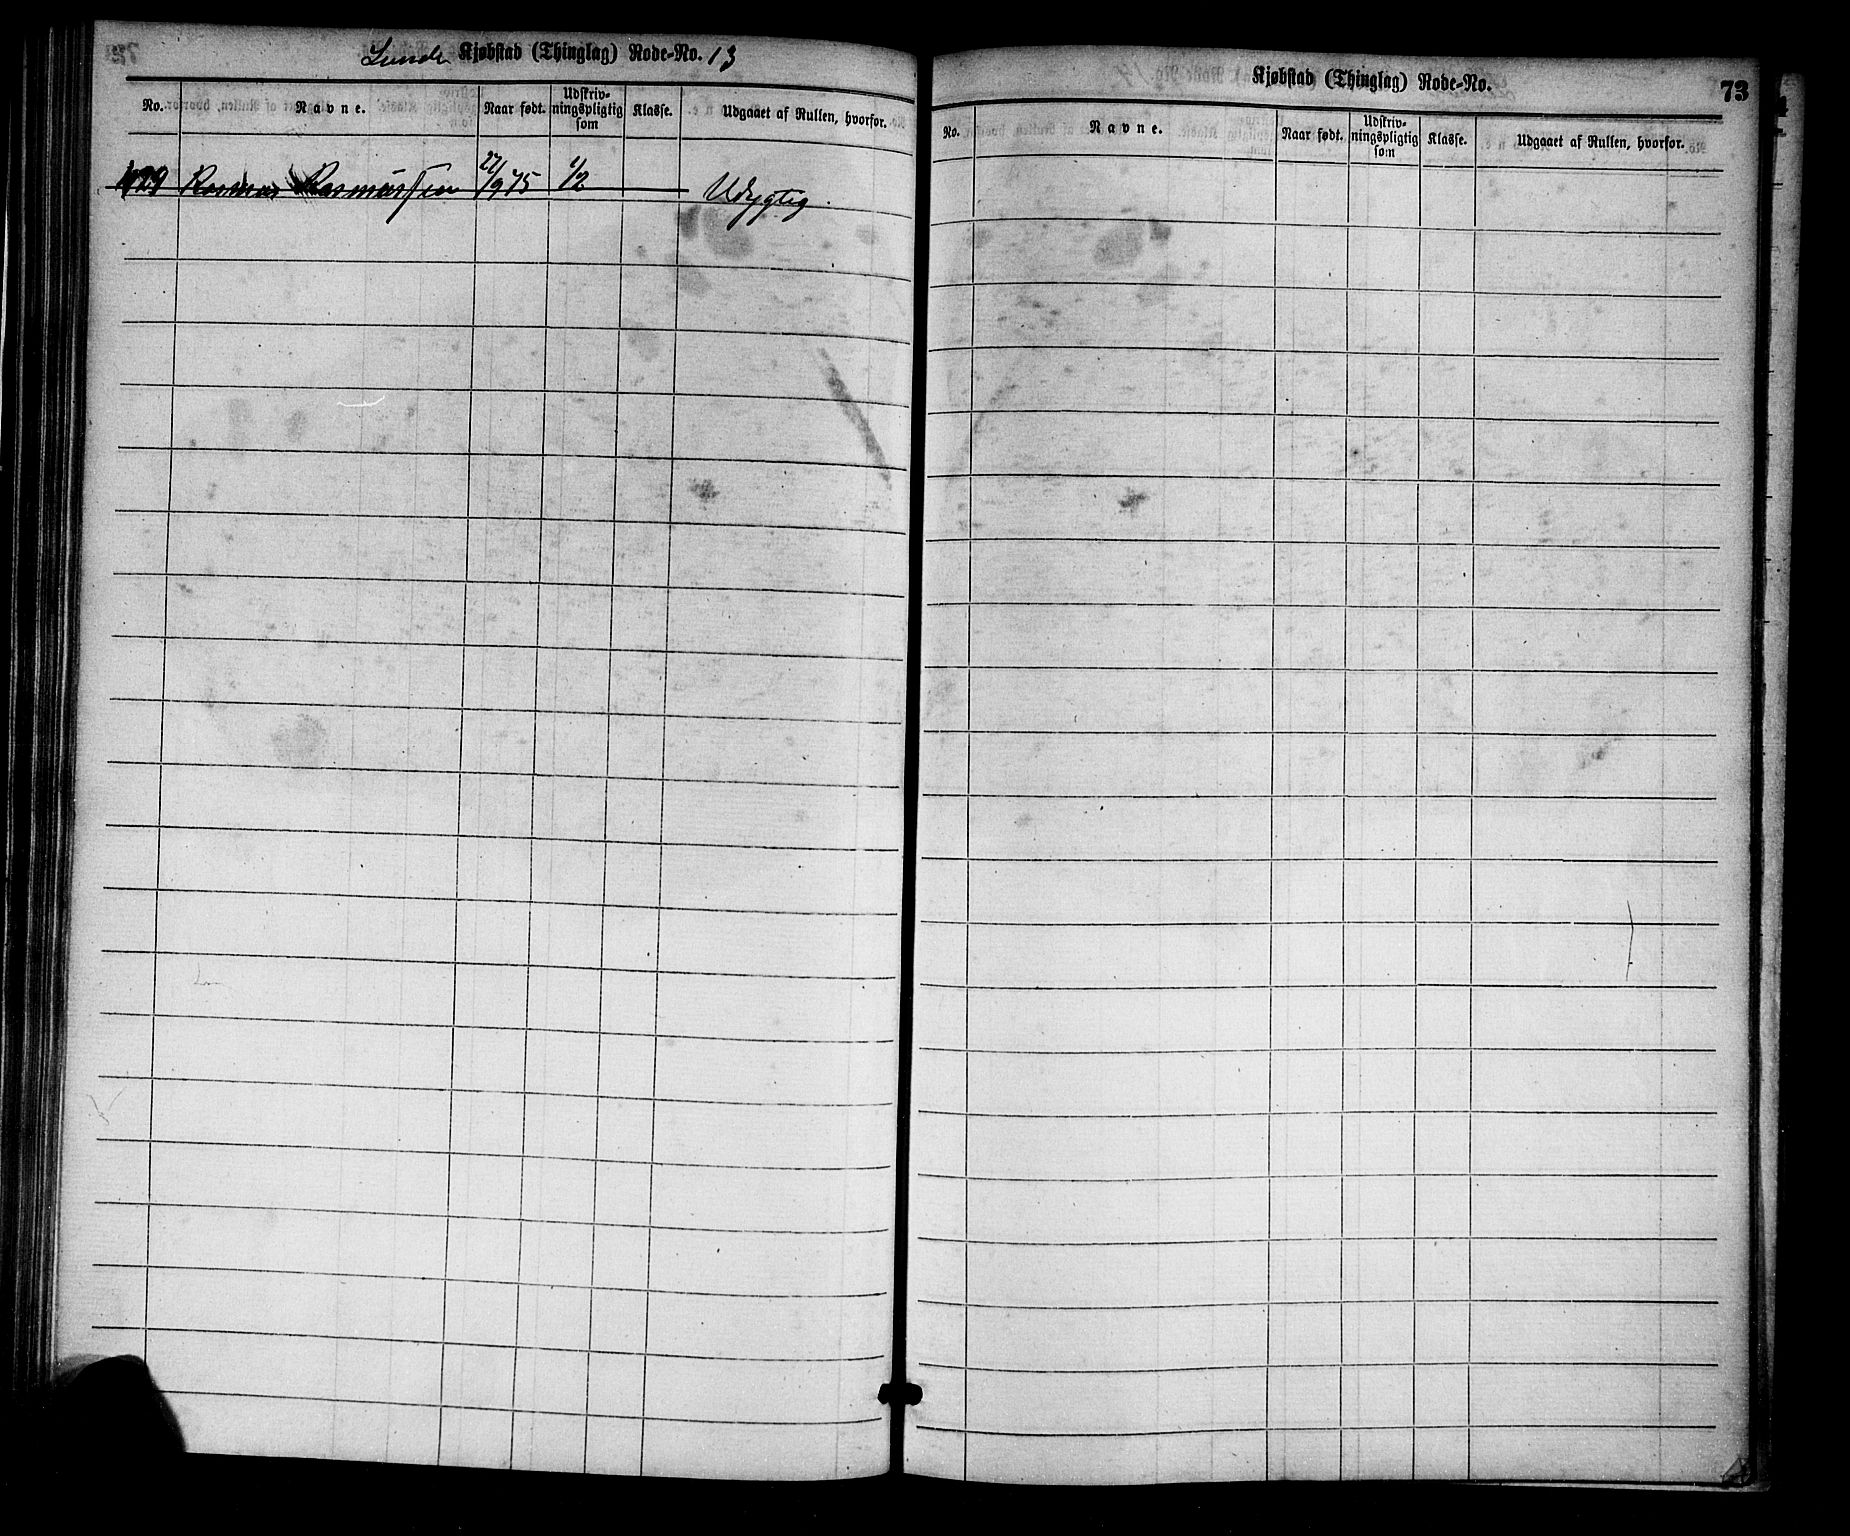 Lunde Kjøbstad (Thinglag) Rode-No. 13
No. Navne. Naar født. Udskriv-ningspligtig som Klasse. Udgaaet af Rullen, hvorfor.
429 Rasmus Rasmussen 27/9 75 1/2 Udygtig.
Kjøbstad (Thinglag) Rode-No. 73
No. Navne. Naar født. Udskriv-ningspligtig som Klasse. Udgaaet af Rullen, hvorfor.